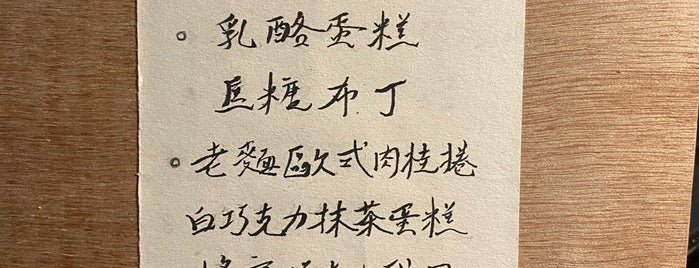 。乳酪蛋糕
焦糖布丁
。老麵歐式肉桂捲
白巧克力抹茶蛋糕